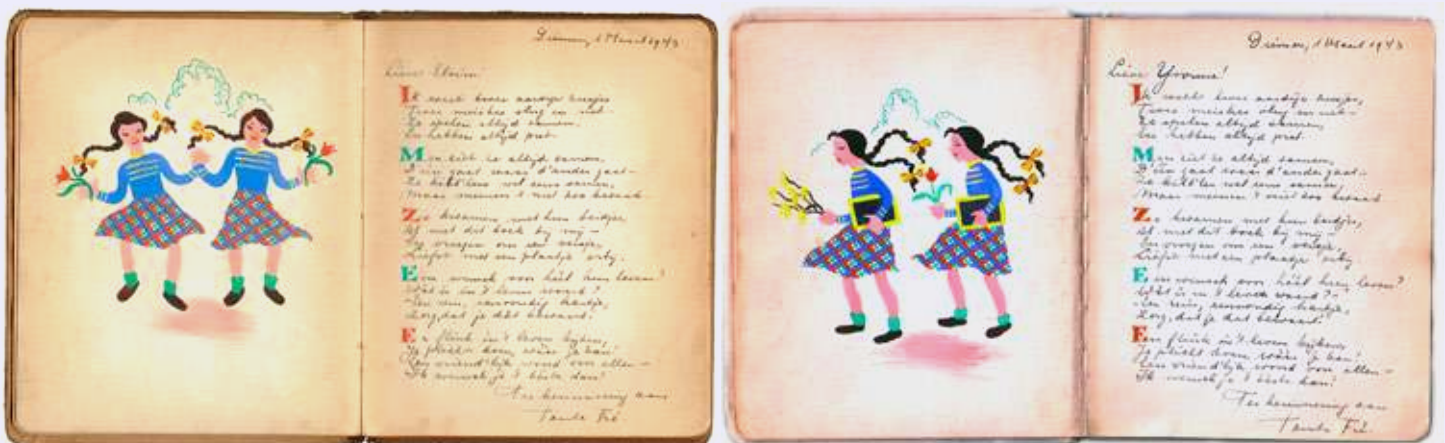 1 Maart 1943
Lieve
Ik weet twee aardige meisjes
Twee meisjes vlug en net -
Ze spelen altijd samen,
En hebben altijd pret.
Men ziet ze altijd samen,
D'één gaat waar d'ander gaat -
Ze wel eens samen,
Maar meenen 't niet zoo kwaad.
Zo kwamen met hun beidjes,
met dit boek bij mij -
Ze vroegen om een versje,
Liefst met een plaatje erbij.
Een wensch voor héél hun leven?
Wát is in 't leven waard? -
Een rein, eenvoudig hartje,
Zorg, dat je dát bewaart!
En flink in 't leven kijken,
Je plicht doen, waar je kan!
Een vriend'lijk woord voor allen -
Ik wensch je 't beste dan!
Ter herinnering aan
Tante Fré.
Diemen, 1 Maart 1943
Lieve Yvonne!
Ik weet twee aardige meisjes,
Twee meisjes vlug en net -
Ze spelen altijd samen,
En hebben altijd pret.
Men ziet ze altijd samen,
D'één gaat waar d'ander gaat -
Ze wel eens samen,
Maar meenen 't niet zoo kwaad
Zo kwamen met hun beidjes,
met dit boek bij mij -
En vroegen om een versje,
Liefst met een plaatje erbij.
Een wensch voor héél hun leven?
Wát is in 't leven waard? -
Een rein, eenvoudig hartje,
Zorg, dat je dat bewaart!
Een flink in 't leven kijken,
Je plicht doen, waar je kan!
Een vriend'lijk woord voor allen -
Ik wensch je 't beste dan!
Ter herinnering aan
Tante Fré.